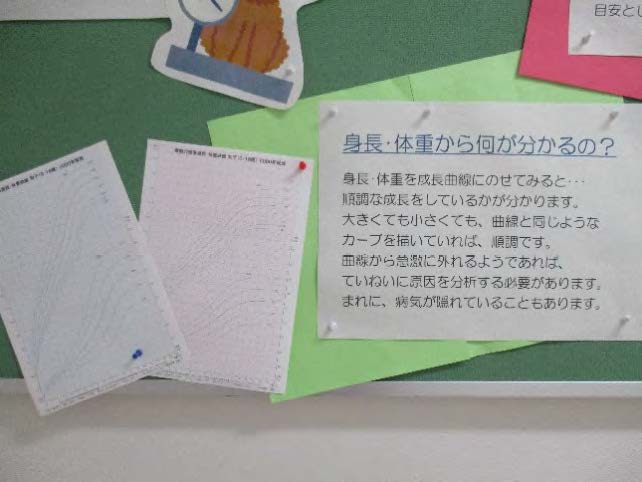 目安とし
身長・体重から何が分かるの？
身長・体重を成長曲線にのせてみると・・・
順調な成長をしているかが分かります。
大きくても小さくても、曲線と同じような
カーブを描いていれば、順調です。
曲線から急激に外れるようであれば、
ていねいに原因を分析する必要があります。
まれに、病気が隠れていることもあります。